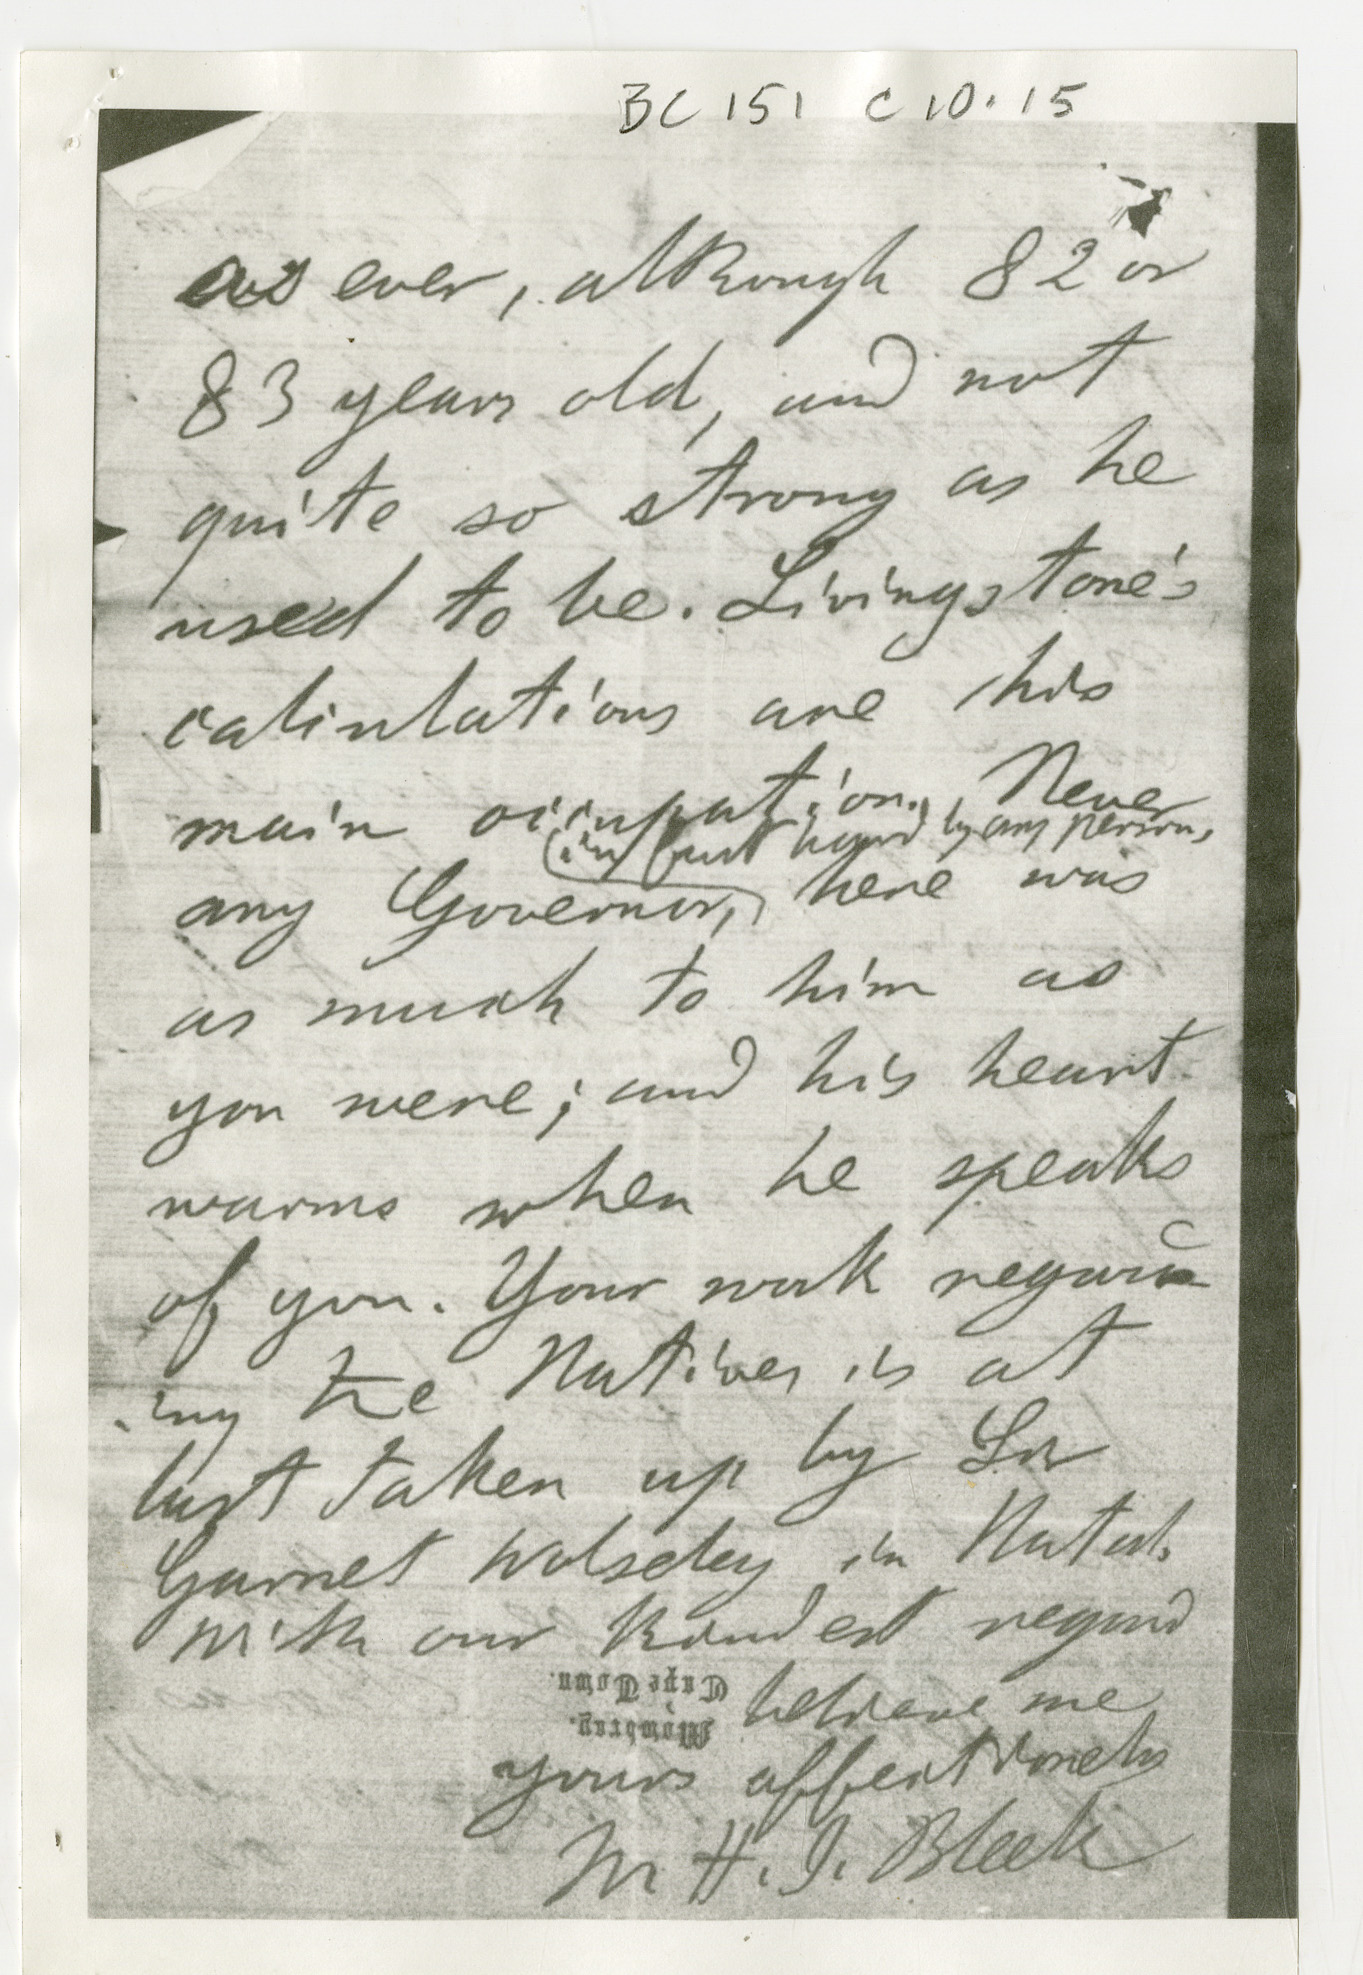 BC 151 C 10.15
as ever, although 82 or
83 years old, and not
quite so strong as he
used to be. Livingstone's
calculations are his
main occupation. Never
(in fact hand by any person,
any Governor,) here was
as much to him as
you were; and his heart
warms when he speaks
of you. Your work regard
ing the Natives is at
last taken up by Sir
Garnet Wolseley in Natal.
With our kindest regard
believe me
Mowbray.
Cape Town.
yours affectionately
W. H. I. Bleek